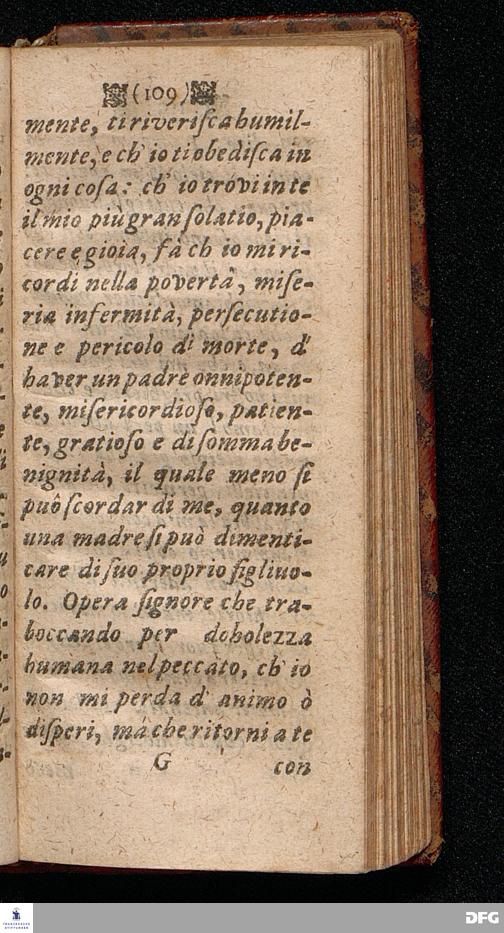 (109)
mente, ti riveriſca humil-
mente, e ch' io ti obediſca in
ogni coſa: ch' io trovi in te
il mio più gran ſolatio, pia-
cere e gioia, fà ch io mi ri-
cordi nella povertà, miſe-
ria infermità, perſecutio-
ne e pericolo di morte, d'
haver un padre onnipoten-
te, miſericordioſo, patien-
te, gratioſo e di ſomma be-
nignità, il quale meno ſi
puô ſcordar di me, quanto
una madre ſi può dimenti-
care di ſuo proprio figliuo-
lo. Opera ſignore che tra-
boccando per dobolezza
humana nel peccàto, ch' io
non mi perda d' animo ò
diſperi, mà che ritorni a te
G con
FRANCKESCHE
STIFTUNGEN
DFG